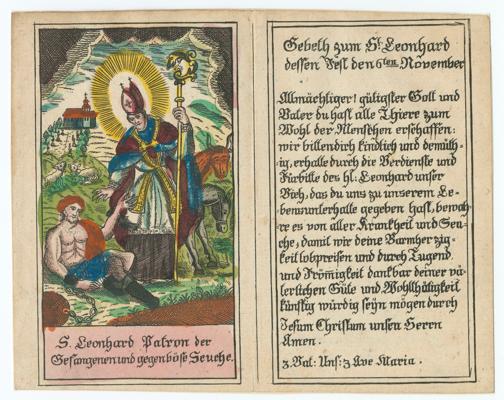 S. Leonhard Patron der
Gefangenen und gegen böse Seuche.
Gebeth zum St. Leonhard
dessen Fest den 6ten November
Allmächtiger! gütigster Gott und
Vater du hast alle Thiere zum
Wohl der Menschen erschaffen:
wir bitten dich kindlich und demüth-
ig, erhalte durch die Verdienste und
Fürbitte des hl: Leonhard unser
Vieh, das du uns zu unserem Le-
bensunterhalte gegeben hast, bewah-
re es von aller Krankheit und Seu-
che, damit wir deine Barmherzig-
keit lobpreisen und durch Tugend
und Frömigkeit dankbar deiner vä-
terlichen Güte und Wohlthätigkeit
künftig würdig seÿn mögen durch
Jesum Christum unsen Herrn
Amen.
3. Vat: Uns: 3 Ave Maria.